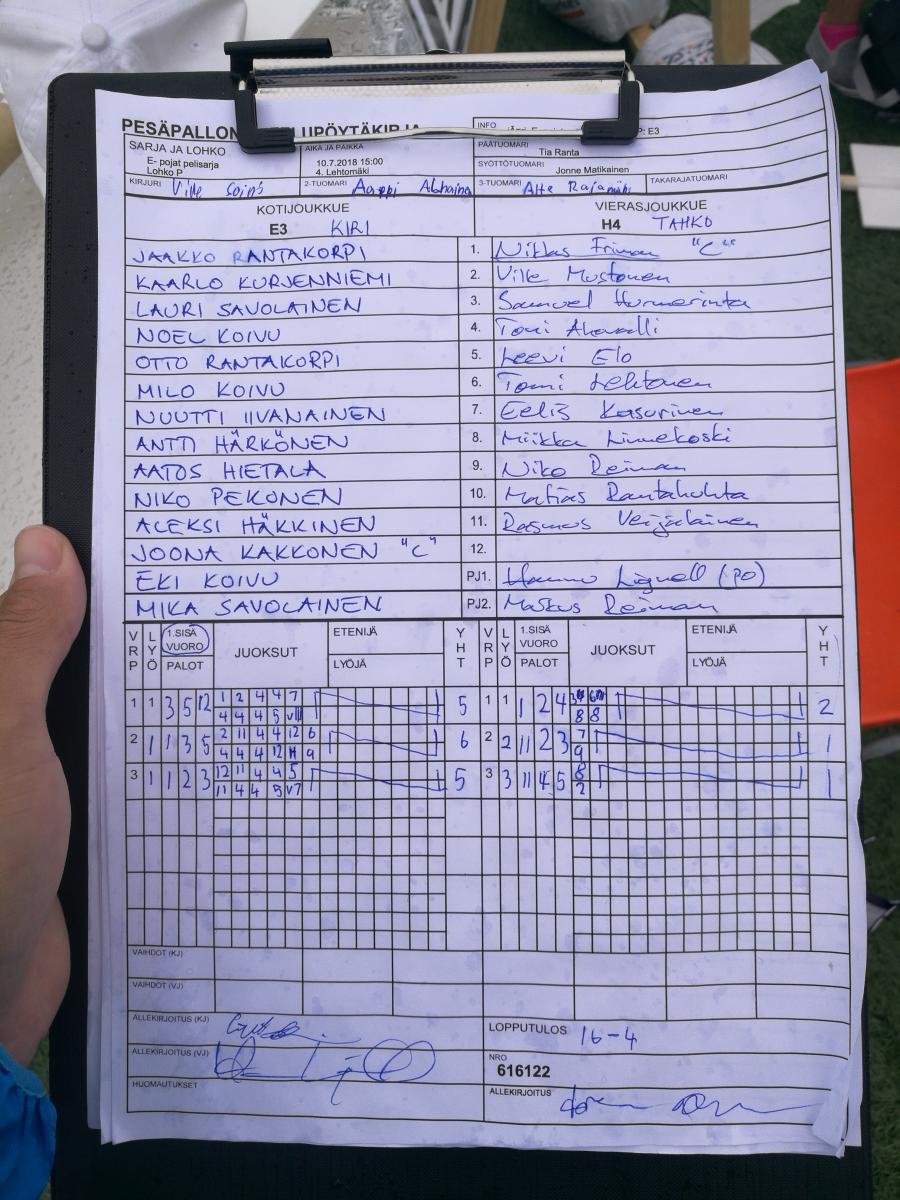 PESÄPALLON
INFO
P: E3
SARJA JA LOHKO
E- pojat pelisarja
Lohko P
AIKA JA PAIKKA
10.7.2018 15:00
4. Lehtomäki
PÄÄTUOMARI
Tia Ranta
SYÖTTÖTUOMARI
Jonne Matikainen
KIRJURI Ville
2-TUOMARI
3-TUOMARI
TAKARAJATUOMARI
KOTIJOUKKUE
E3 KIRI
VIERASJOUKKUE
H4 TAHKO
JAAKKO RANTAKORPI 1. "C"
KAARLO KURJENNIEMI 2. Ville Mustonen
LAURI SAVOLAINEN 3. Samuel Hurmerinta
NOEL KOIVU 4. Tomi
OTTO RANTAKORPI 5. Leevi Elo
MILO KOIVU 6. Tomi Lehtonen
NUUTTI IIVANAINEN 7. Eelis Kasurinen
ANTTI HÄRKÖNEN 8. Miikka Linnekoski
AATOS HIETALA 9. Niko Reiman
NIKO PEKONEN 10. Matias Rantahuhta
ALEKSI HÄKKINEN 11. Rasmus Veijalainen
JOONA KAKKONEN "C" 12.
EKI KOIVU PJ1. Hannu Lignell (PO)
MIKA SAVOLAINEN PJ2. Markus Reiman
VRP LYÖ 1.SISÄ VUORO PALOT JUOKSUT ETENIJÄ LYÖJÄ YHT VRP LYÖ 1.SISÄ VUORO PALOT JUOKSUT ETENIJÄ LYÖJÄ YHT
1 1 3 5 12 1 2 4 4 7 5 1 1 1 2 4 2
4 4 4 5 8 8
2 1 1 3 5 2 11 4 4 12 6 6 2 2 11 2 3 7 1
4 4 4 12 9 9
3 1 1 2 3 12 11 4 4 5 5 3 3 11 4 5 8 1
11 4 4 5 V7 2
VAIHDOT (KJ)
VAIHDOT (VJ)
ALLEKIRJOITUS (KJ)
LOPPUTULOS 16-4
ALLEKIRJOITUS (VJ)
NRO
616122
HUOMAUTUKSET
ALLEKIRJOITUS